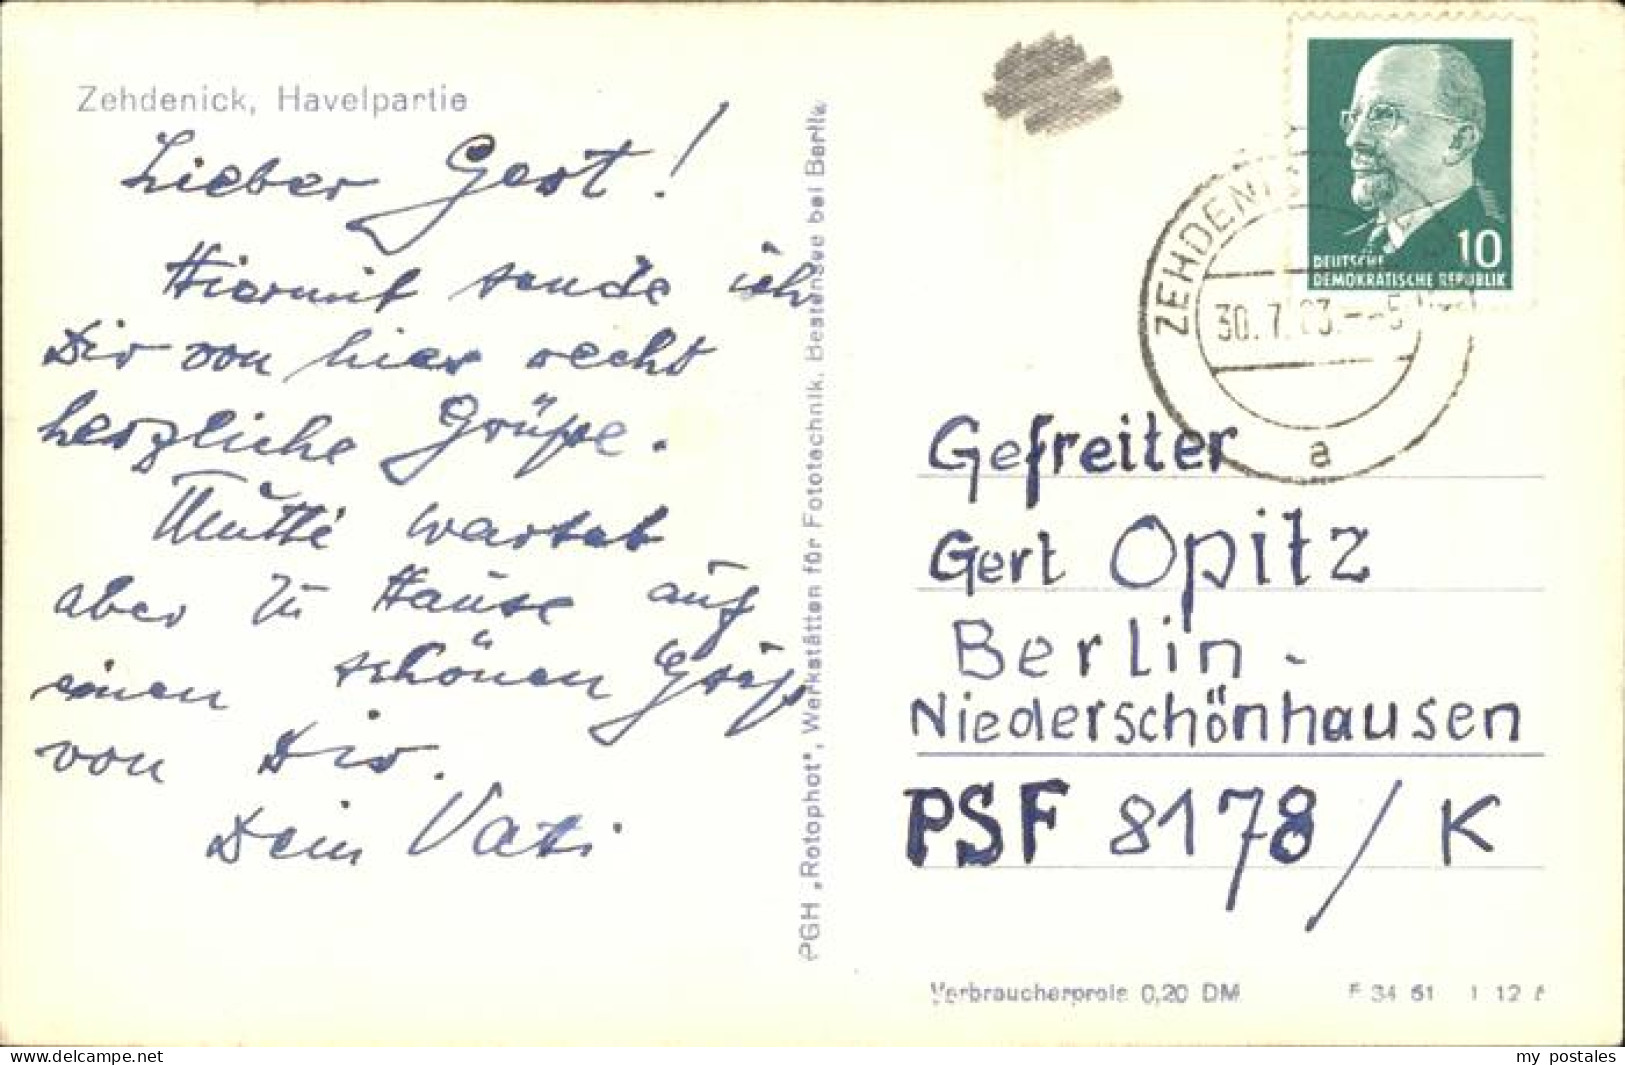 Zehdenick, Havelpartie
Lieber Gert!
Hiermit sende ich
Dir von hier recht
herzliche Grüße.
Mutti wartet
aber zu Hause auf
einen schönen Gruß
von Dir.
Dein Vati
PGH „Rotophot", Werkstätten für Fototechnik, Bestensee bei Berlin
DEUTSCHE 10
DEMOKRATISCHE REPUBLIK
ZEHDENICK
30.7.63.--5
a
Gefreiter
Gert Opitz
Berlin-
Niederschönhausen
PSF 8178/K
Verbraucherpreis 0,20 DM F 34 61 1 12 A
delcampe.net my_postales